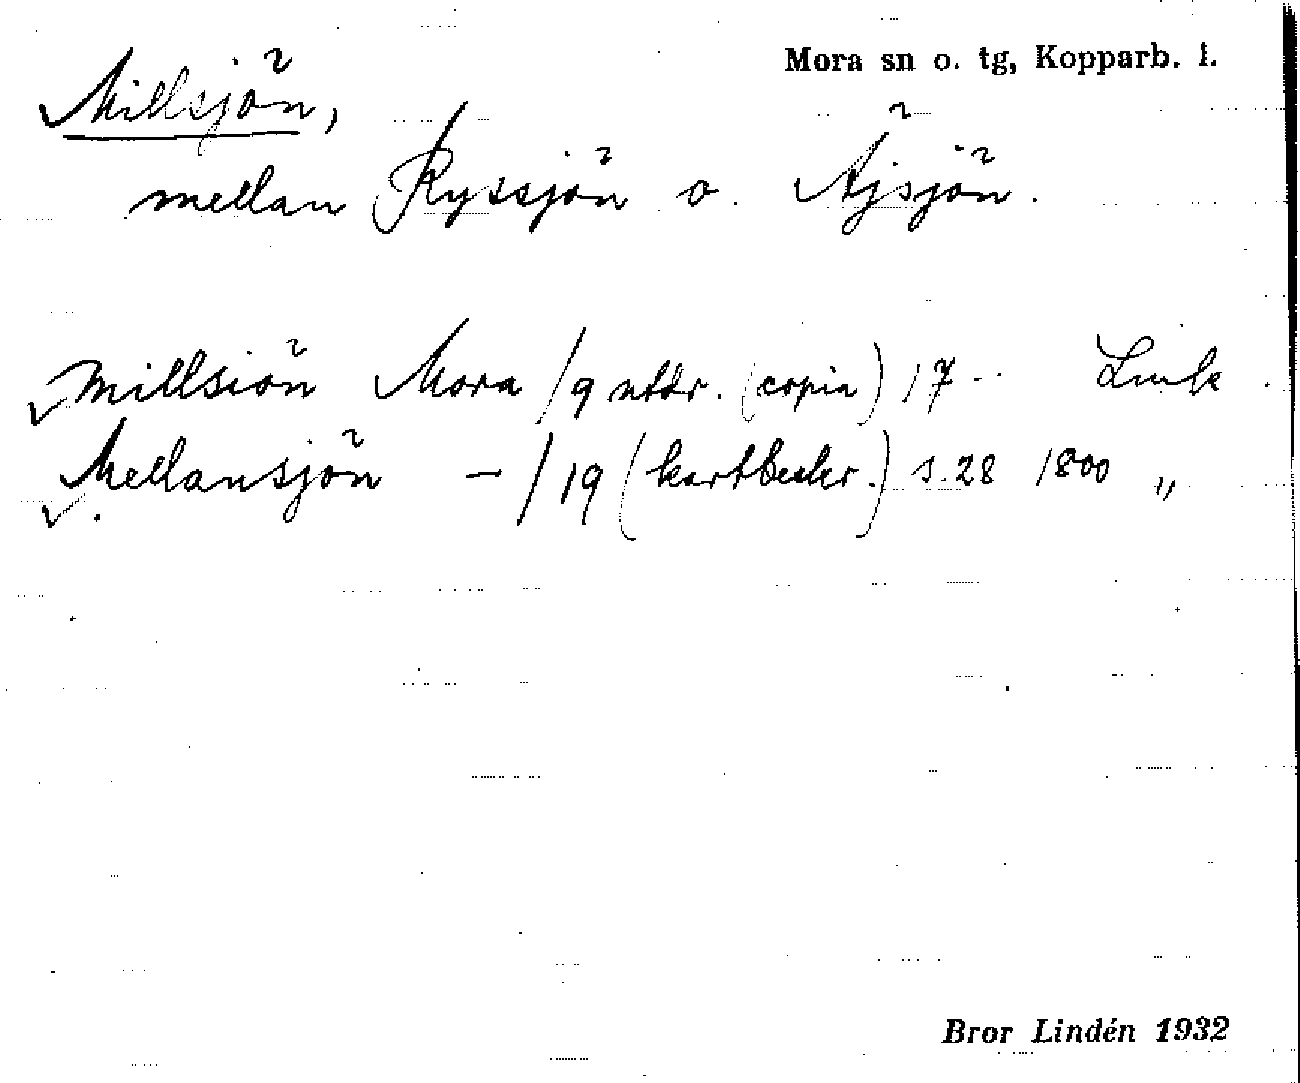 Mora sn o. tg, Kopparb. l.
Millsjön,
mellan Ryssjön o. Äjsjön.
Millsiön Mora /9 utdr. (copia) 17--
Mellansjön — /19 (kartbeskr.) s. 28 1800 "
Bror Lindén 1932